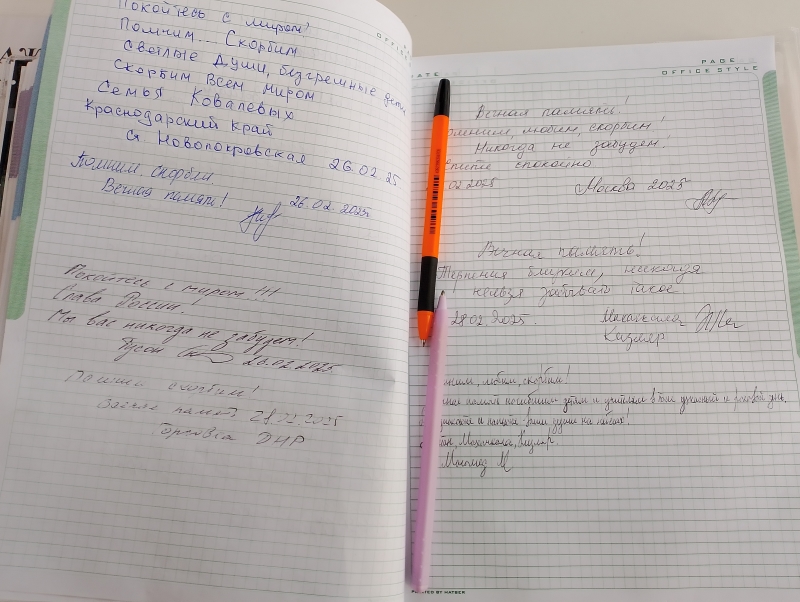 Покойтесь с миром!
Помним... Скорбим
Светлые Души, безгрешные дети
Скорбим Всем Миром
Семья Ковалевых
Краснодарский край
ст. Новопокровская 26.02.25
Помним. скорбим.
Вечная память! 26.02.2025г
Покойтесь с миром!!!
Слава России!
Мы вас никогда не забудем!
26.02.2025.
Помним скорбим!
Вечная память 28.02.2025
Горловка ДНР
OFFICE
PAGE
OFFICE STYLE
ATE
Вечная память!
омним, любим, скорбим!
Никогда не забудем!
спите спокойно
02.2025 Москва 2025
Вечная память!
Терпения близким, никогда
нельзя забывать такое
28.02.2025. Махачкала
Кизляр
ним, любим, скорбим!
память погибшим детям и учителям в тот ужасный и роковой день.
и память ваши души на небесах!
Махачкала, Кизляр.
М
BY HATBER